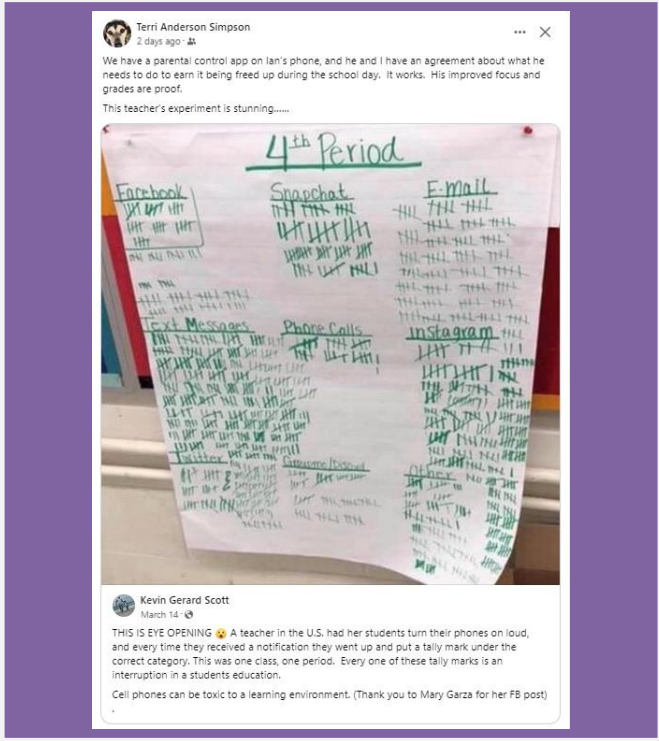 Terri Anderson Simpson
2 days ago ·
We have a parental control app on Ian's phone, and he and I have an agreement about what he
needs to do to earn it being freed up during the school day. It works. His improved focus and
grades are proof.
This teacher's experiment is stunning......
4th Period
Facebook
Snapchat
E-mail
Text Messages
Phone Calls
Instagram
Twitter
Groupme/Discord
Other
Kevin Gerard Scott
March 14 ·
THIS IS EYE OPENING 😮 A teacher in the U.S. had her students turn their phones on loud,
and every time they received a notification they went up and put a tally mark under the
correct category. This was one class, one period. Every one of these tally marks is an
interruption in a students education.
Cell phones can be toxic to a learning environment. (Thank you to Mary Garza for her FB post)
.